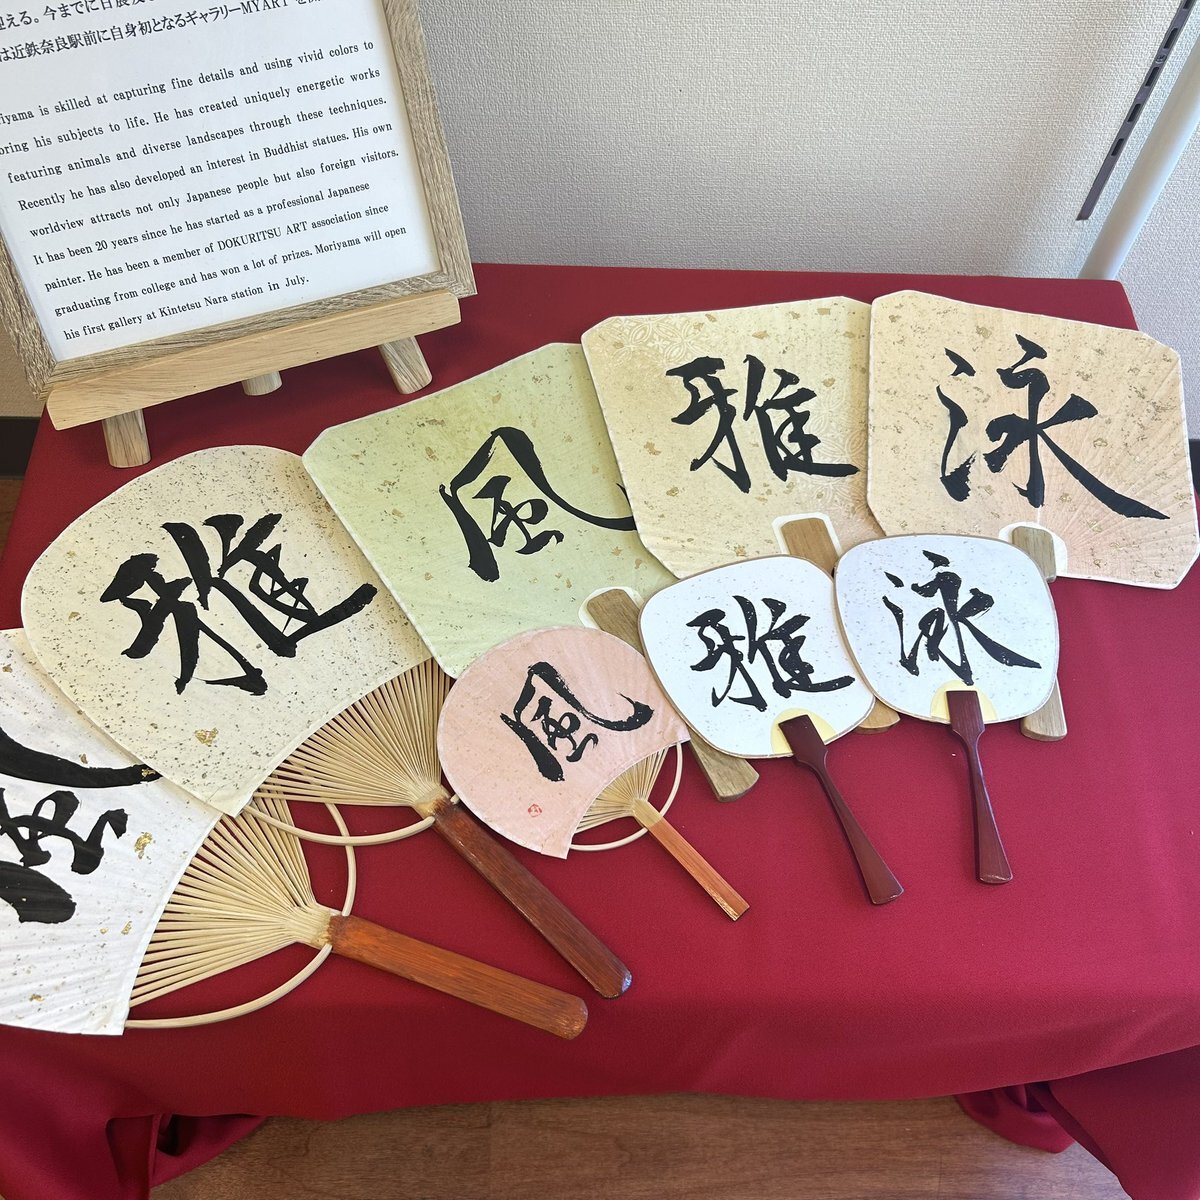 迎える。今までに
は近鉄奈良駅前に自身初となるギャラリーMYART
iyama is skilled at capturing fine details and using vivid colors to
bring his subjects to life. He has created uniquely energetic works
featuring animals and diverse landscapes through these techniques.
Recently he has also developed an interest in Buddhist statues. His own
worldview attracts not only Japanese people but also foreign visitors.
It has been 20 years since he has started as a professional Japanese
painter. He has been a member of DOKURITSU ART association since
graduating from college and has won a lot of prizes. Moriyama will open
his first gallery at Kintetsu Nara station in July.
雅
風
雅
泳
風
雅
泳